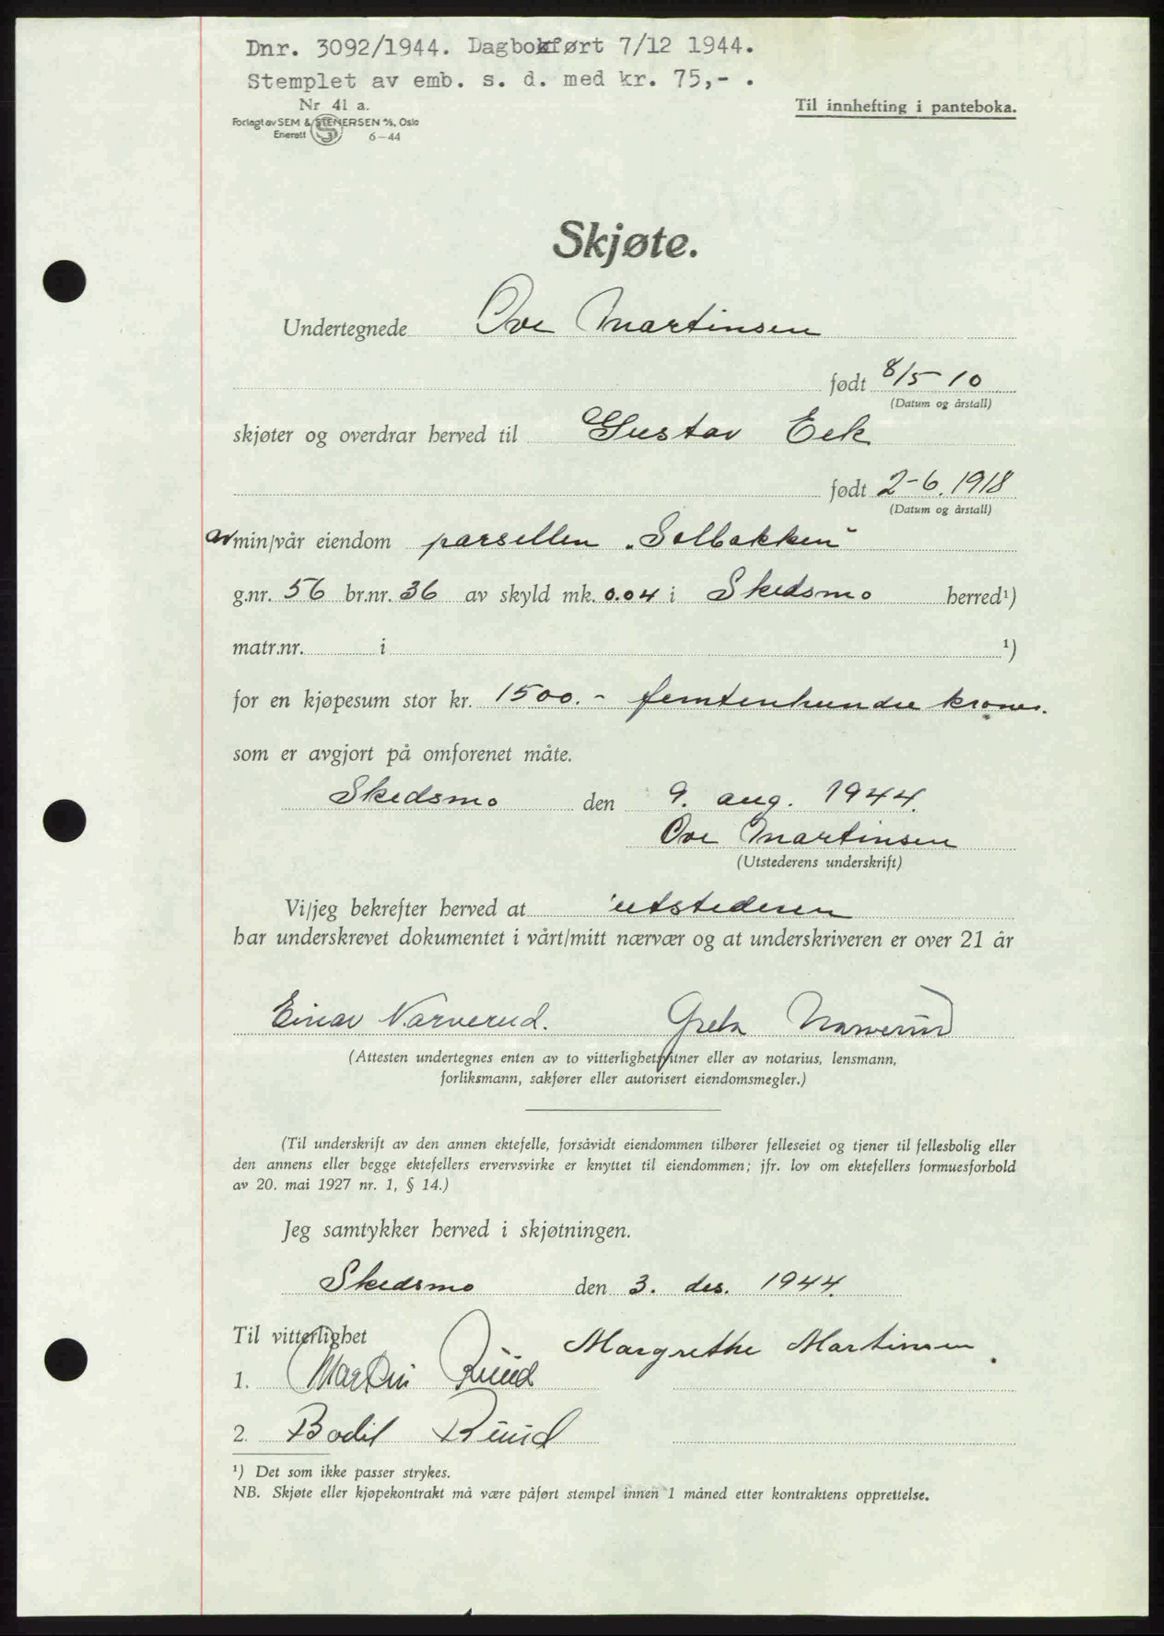 Dnr. 3092/1944. Dagbokført 7/12 1944.
Stemplet av emb. s. d. med kr. 75,- .
Nr 41 a.
Forlagt av SEM & STENERSEN A/S, Oslo
Enerett 6-44
Til innhefting i panteboka.
Skjøte.
Undertegnede Ove Martinsen
født 8/5-10
(Datum og årstall)
skjøter og overdrar herved til Gustav Eek
født 2-6.1918
(Datum og årstall)
av min/vår eiendom parsellen „Solbakken"
g.nr. 56 br.nr. 36 av skyld mk. 0.04 i Skedsmo herred¹)
matr.nr. i ¹)
for en kjøpesum stor kr. 1500.- femtenhundre kroner.
som er avgjort på omforenet måte.
Skedsmo den 9. aug. 1944.
Ove Martinsen
(Utstederens underskrift)
Vi/jeg bekrefter herved at utstederen
har underskrevet dokumentet i vårt/mitt nærvær og at underskriveren er over 21 år
Einar Narverud. Greta Narverud
(Attesten undertegnes enten av to vitterlighetsvitner eller av notarius, lensmann,
forliksmann, sakfører eller autorisert eiendomsmegler.)
(Til underskrift av den annen ektefelle, forsåvidt eiendommen tilhører felleseiet og tjener til fellesbolig eller
den annens eller begge ektefellers ervervsvirke er knyttet til eiendommen; jfr. lov om ektefellers formuesforhold
av 20. mai 1927 nr. 1, § 14.)
Jeg samtykker herved i skjøtningen.
Skedsmo den 3. des. 1944.
Til vitterlighet
Margrethe Martinsen.
1. Martin Ruud
2. Bodil Ruud
¹) Det som ikke passer strykes.
NB. Skjøte eller kjøpekontrakt må være påført stempel innen 1 måned etter kontraktens opprettelse.